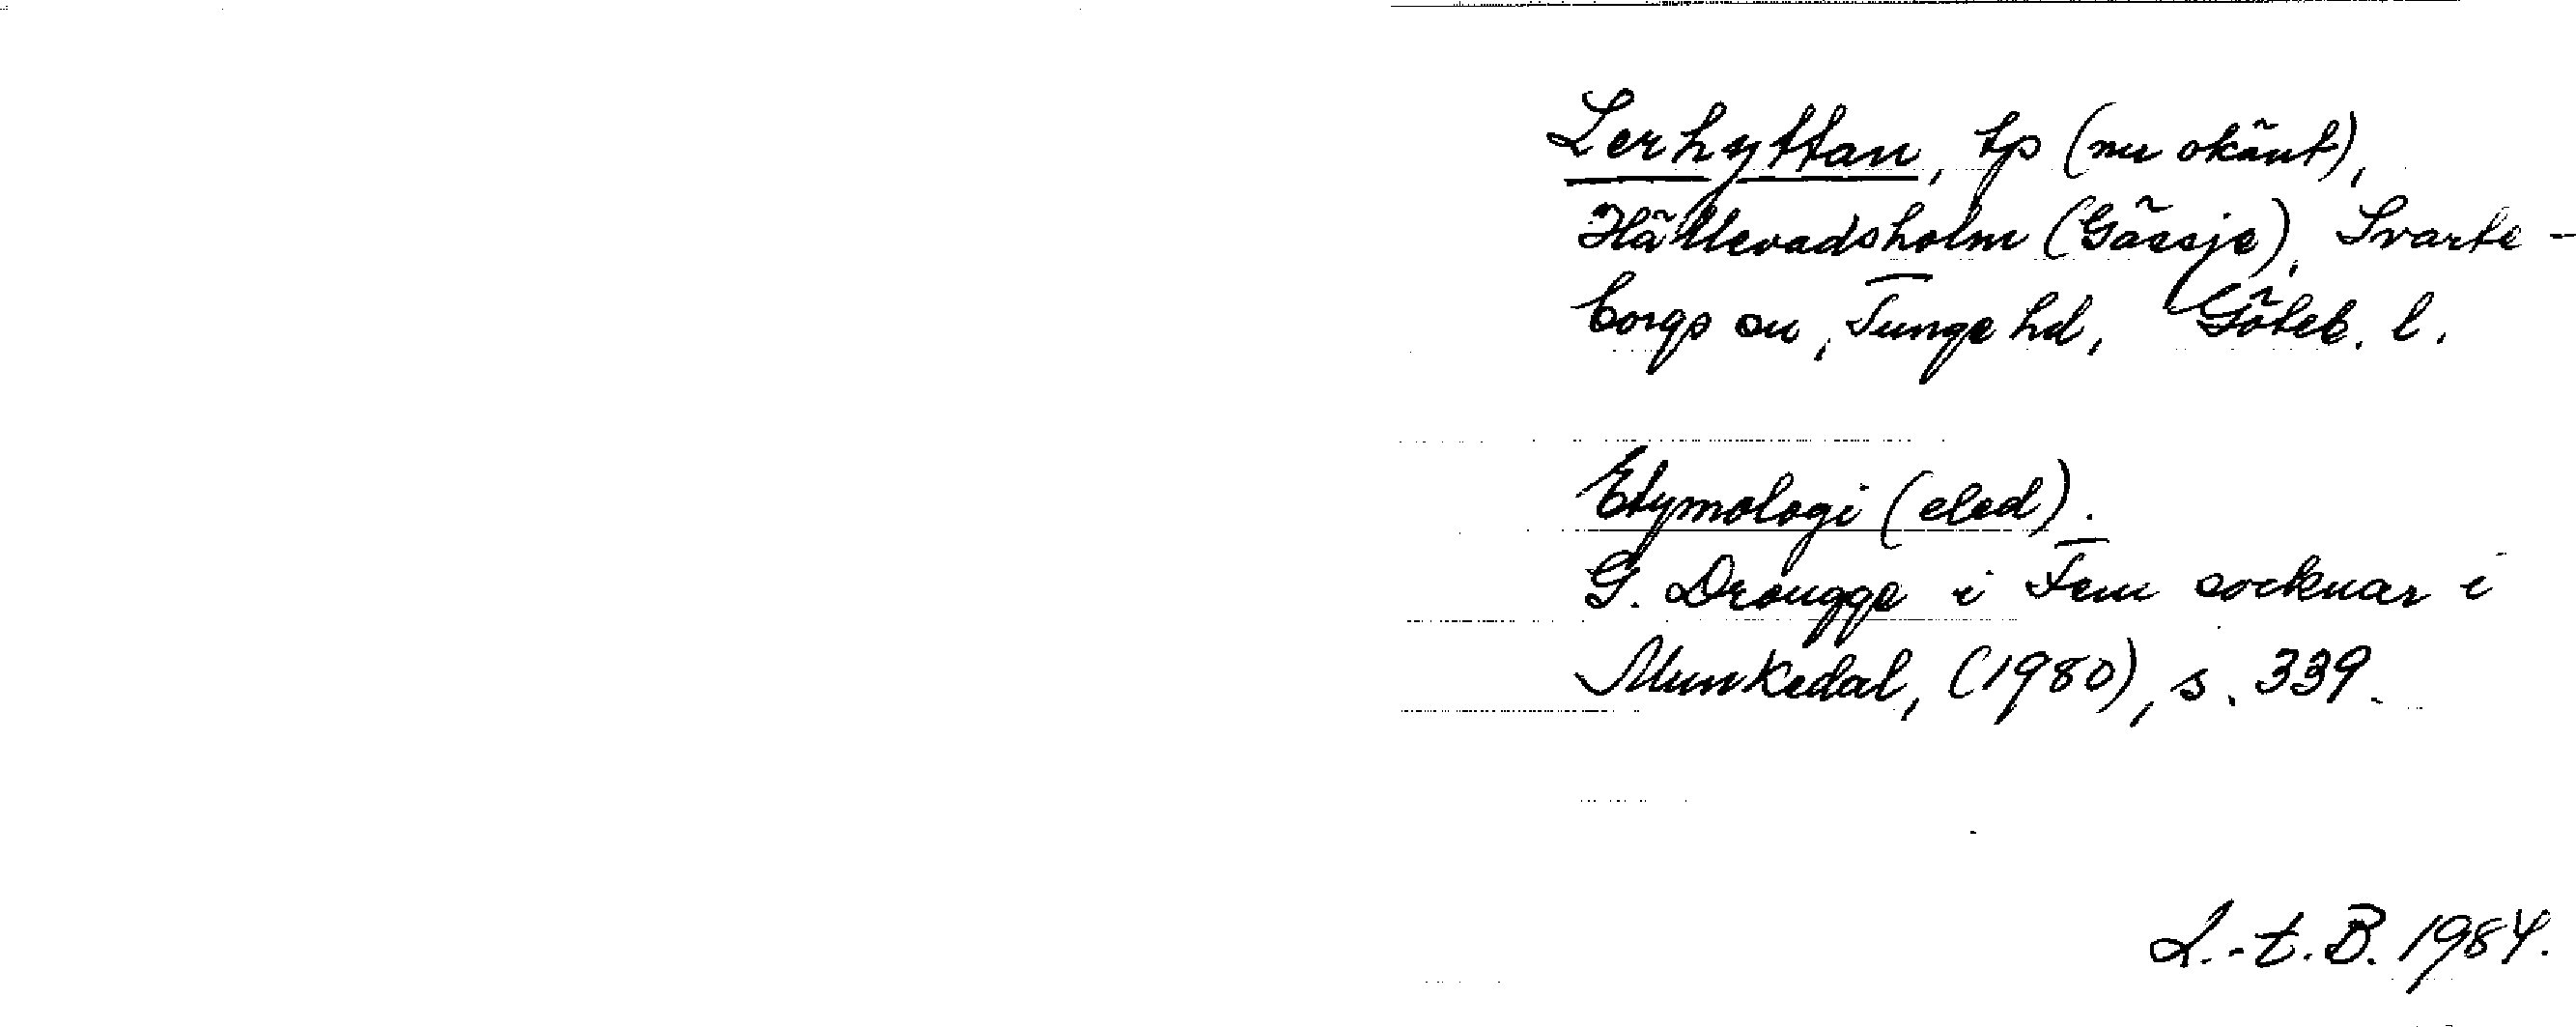 Lerhyttan, tp (nu okänt),
Hällevadsholm (Gässje), Svarte-
borgs sn, Tunge hd, Göteb. l.
Etymologi (eled).
G. Drougge i Fem socknar i
Munkedal, (1980), s. 339.
L.-t. B. 1984.